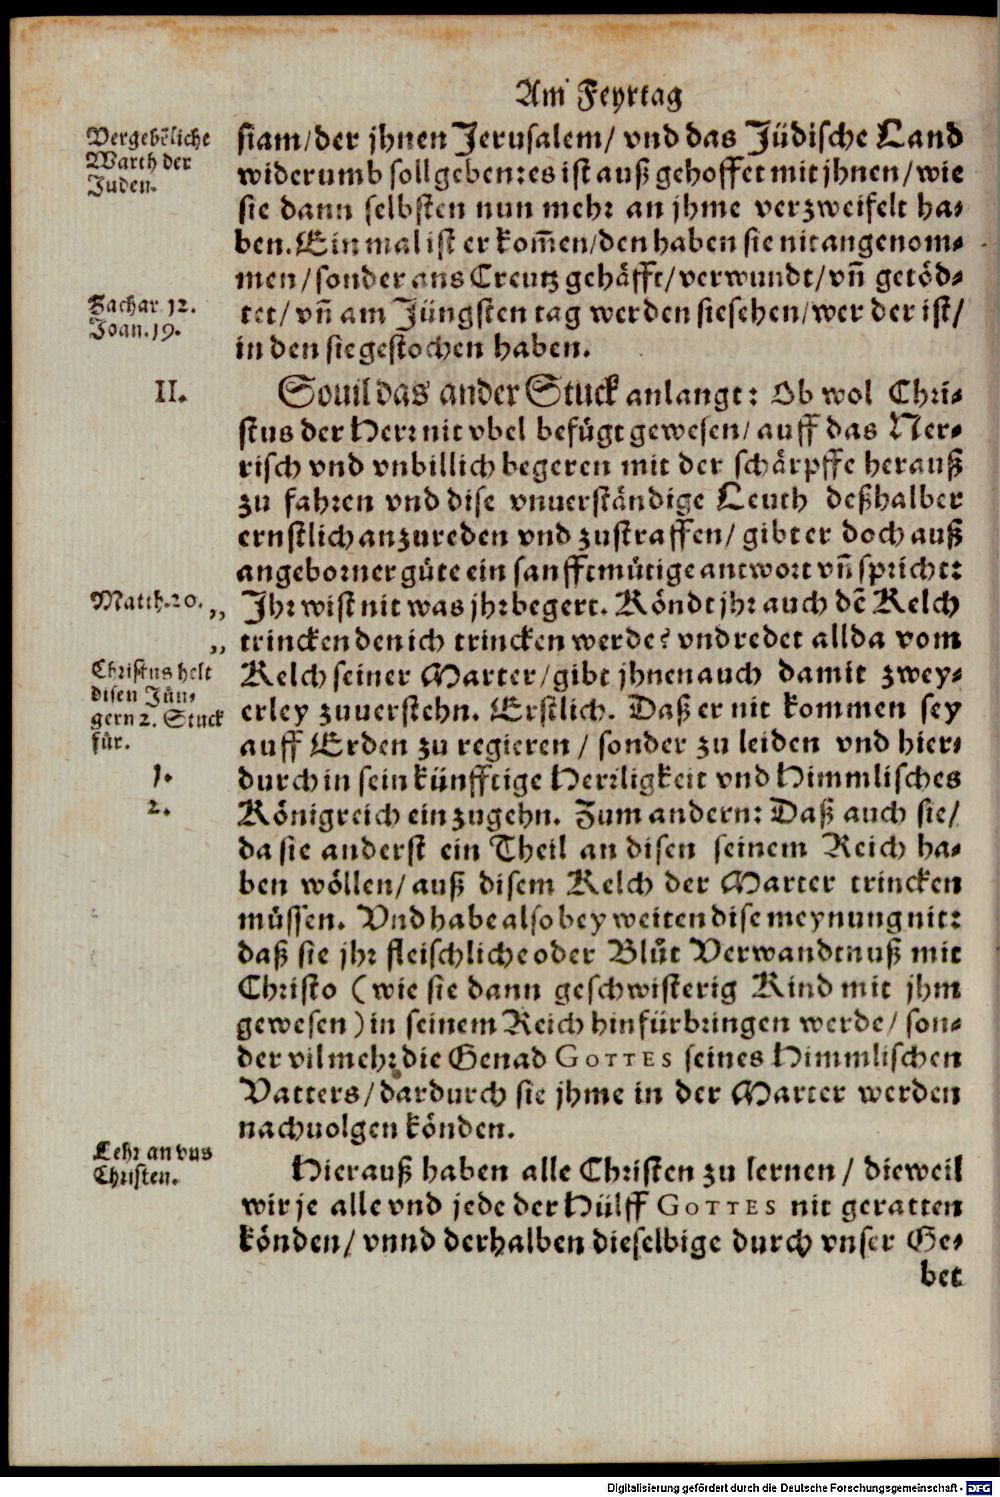 Am Feyrtag
Vergebẽliche
Warth der
Juden.
siam/der jhnen Jerusalem/ vnd das Jüdische Land
widerumb soll geben: es ist auß gehoffet mit jhnen/wie
sie dann selbsten nun mehr an jhme verzweifelt ha-
ben. Ein mal ist er kom̃en/den haben sie nit angenom-
men/sonder ans Creutz gehäfft/verwundt/vñ getöd-
Zachar 12.
Joan.19.
tet/ vñ am Jüngsten tag werden sie sehen/wer der ist/
in den sie gestochen haben.
II.
Souil das ander Stuck anlangt: Ob wol Chri-
stus der Herr nit vbel befügt gewesen/ auff das Ner-
risch vnd vnbillich begeren mit der schärpffe herauß
zu fahren vnd dise vnuerständige Leuth deßhalber
ernstlich anzureden vnd zustraffen/ gibt er doch auß
angeborner güte ein sanfftmütige antwort vñ spricht:
Matth.20.
„ Jhr wist nit was jhr begert. Köndt jhr auch dẽ Kelch
„ trincken den ich trincken werde? vnd redet allda vom
Christus helt
disen Jün-
gern 2. Stuck
für.
Kelch seiner Marter/gibt jhnen auch damit zwey-
erley zuuerstehn. Erstlich. Daß er nit kommen sey
auff Erden zu regieren / sonder zu leiden vnd hier-
1.
durch in sein künfftige Herrligkeit vnd Himmlisches
2.
Königreich ein zugehn. Zum andern: Daß auch sie/
da sie anderst ein Theil an disen seinem Reich ha-
ben wöllen/ auß disem Kelch der Marter trincken
müssen. Vnd habe also bey weiten dise meynung nit:
daß sie jhr fleischliche oder Blůt Verwandtnuß mit
Christo (wie sie dann geschwisterig Kind mit jhm
gewesen) in seinem Reich hinfür bringen werde/ son-
der vil mehr die Genad GOTTES seines Himmlischen
Vatters/dardurch sie jhme in der Marter werden
nachuolgen könden.
Lehr an vns
Christen.
Hierauß haben alle Christen zu lernen / dieweil
wir je alle vnd jede der Hülff GOTTES nit geratten
könden/ vnnd derhalben dieselbige durch vnser Ge-
bet
Digitalisierung gefördert durch die Deutsche Forschungsgemeinschaft - DFG